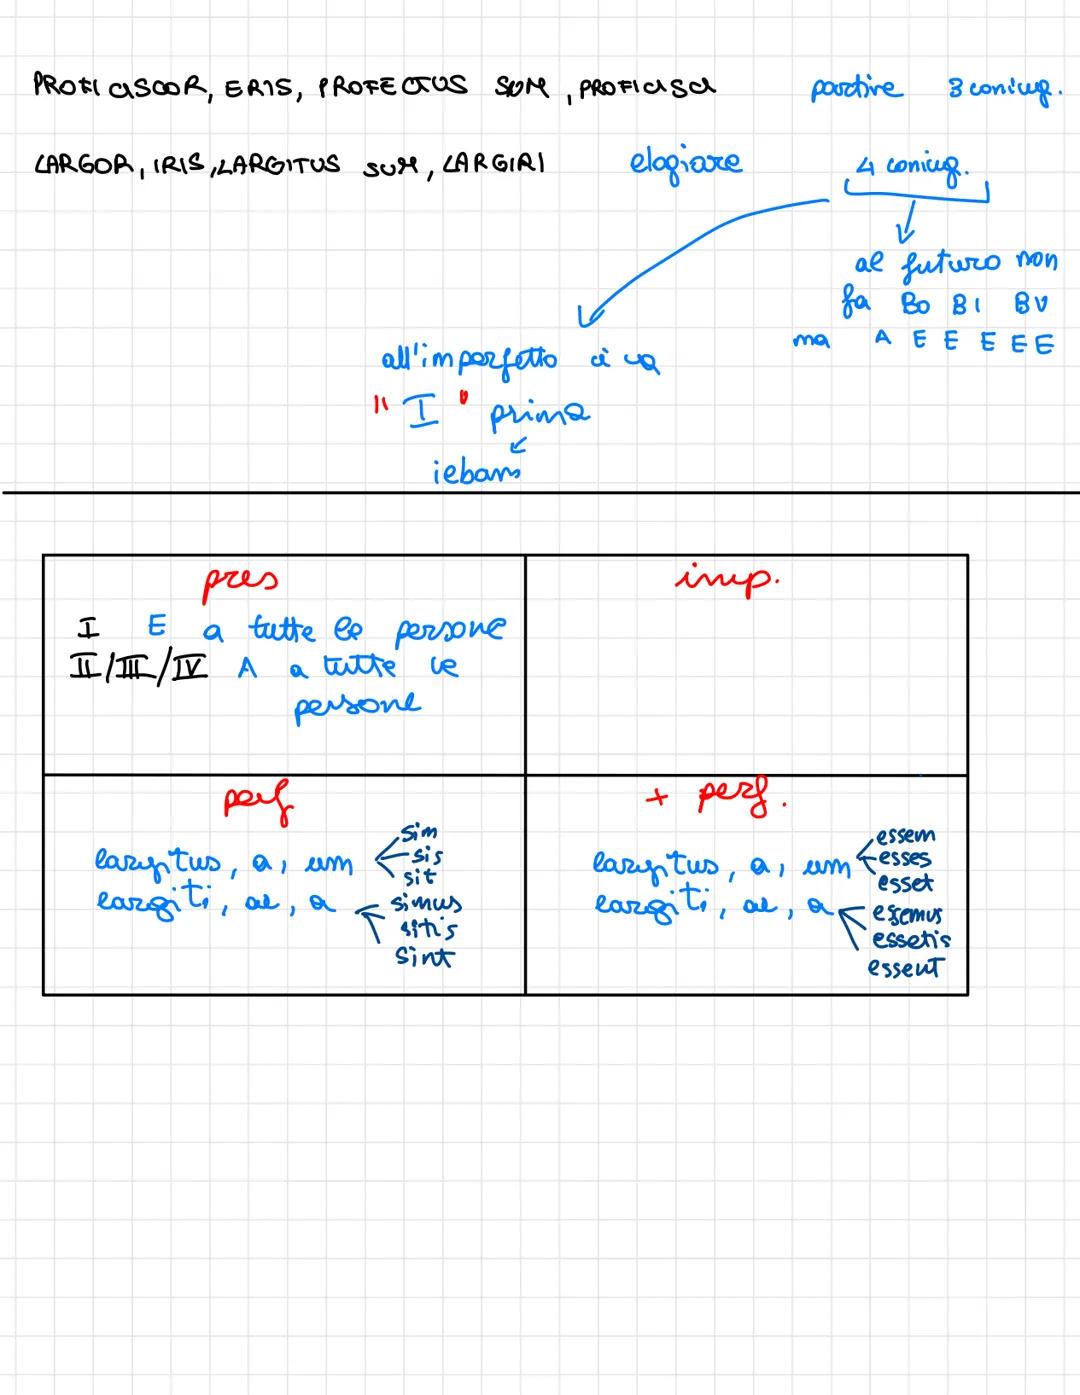 PROFICISCOR, ERIS, PROFECTUS SUM, PROFICISCI partire 3 coniug.
LARGOR, IRIS, LARGITUS SUM, LARGIRI elogiare 4 coniug.
al futuro non
fa BO BI BU
ma A E E E E E
all'imperfetto ci va
"I" prima
iebam
pres
I E a tutte le persone
II/III/IV A a tutte le
persone
imp.
perf
largitus, a, um sim
sis
sit
largiti, ae, a simus
sitis
sint
+ perf.
largitus, a, um essem
esses
esset
largiti, ae, a essemus
essetis
essent